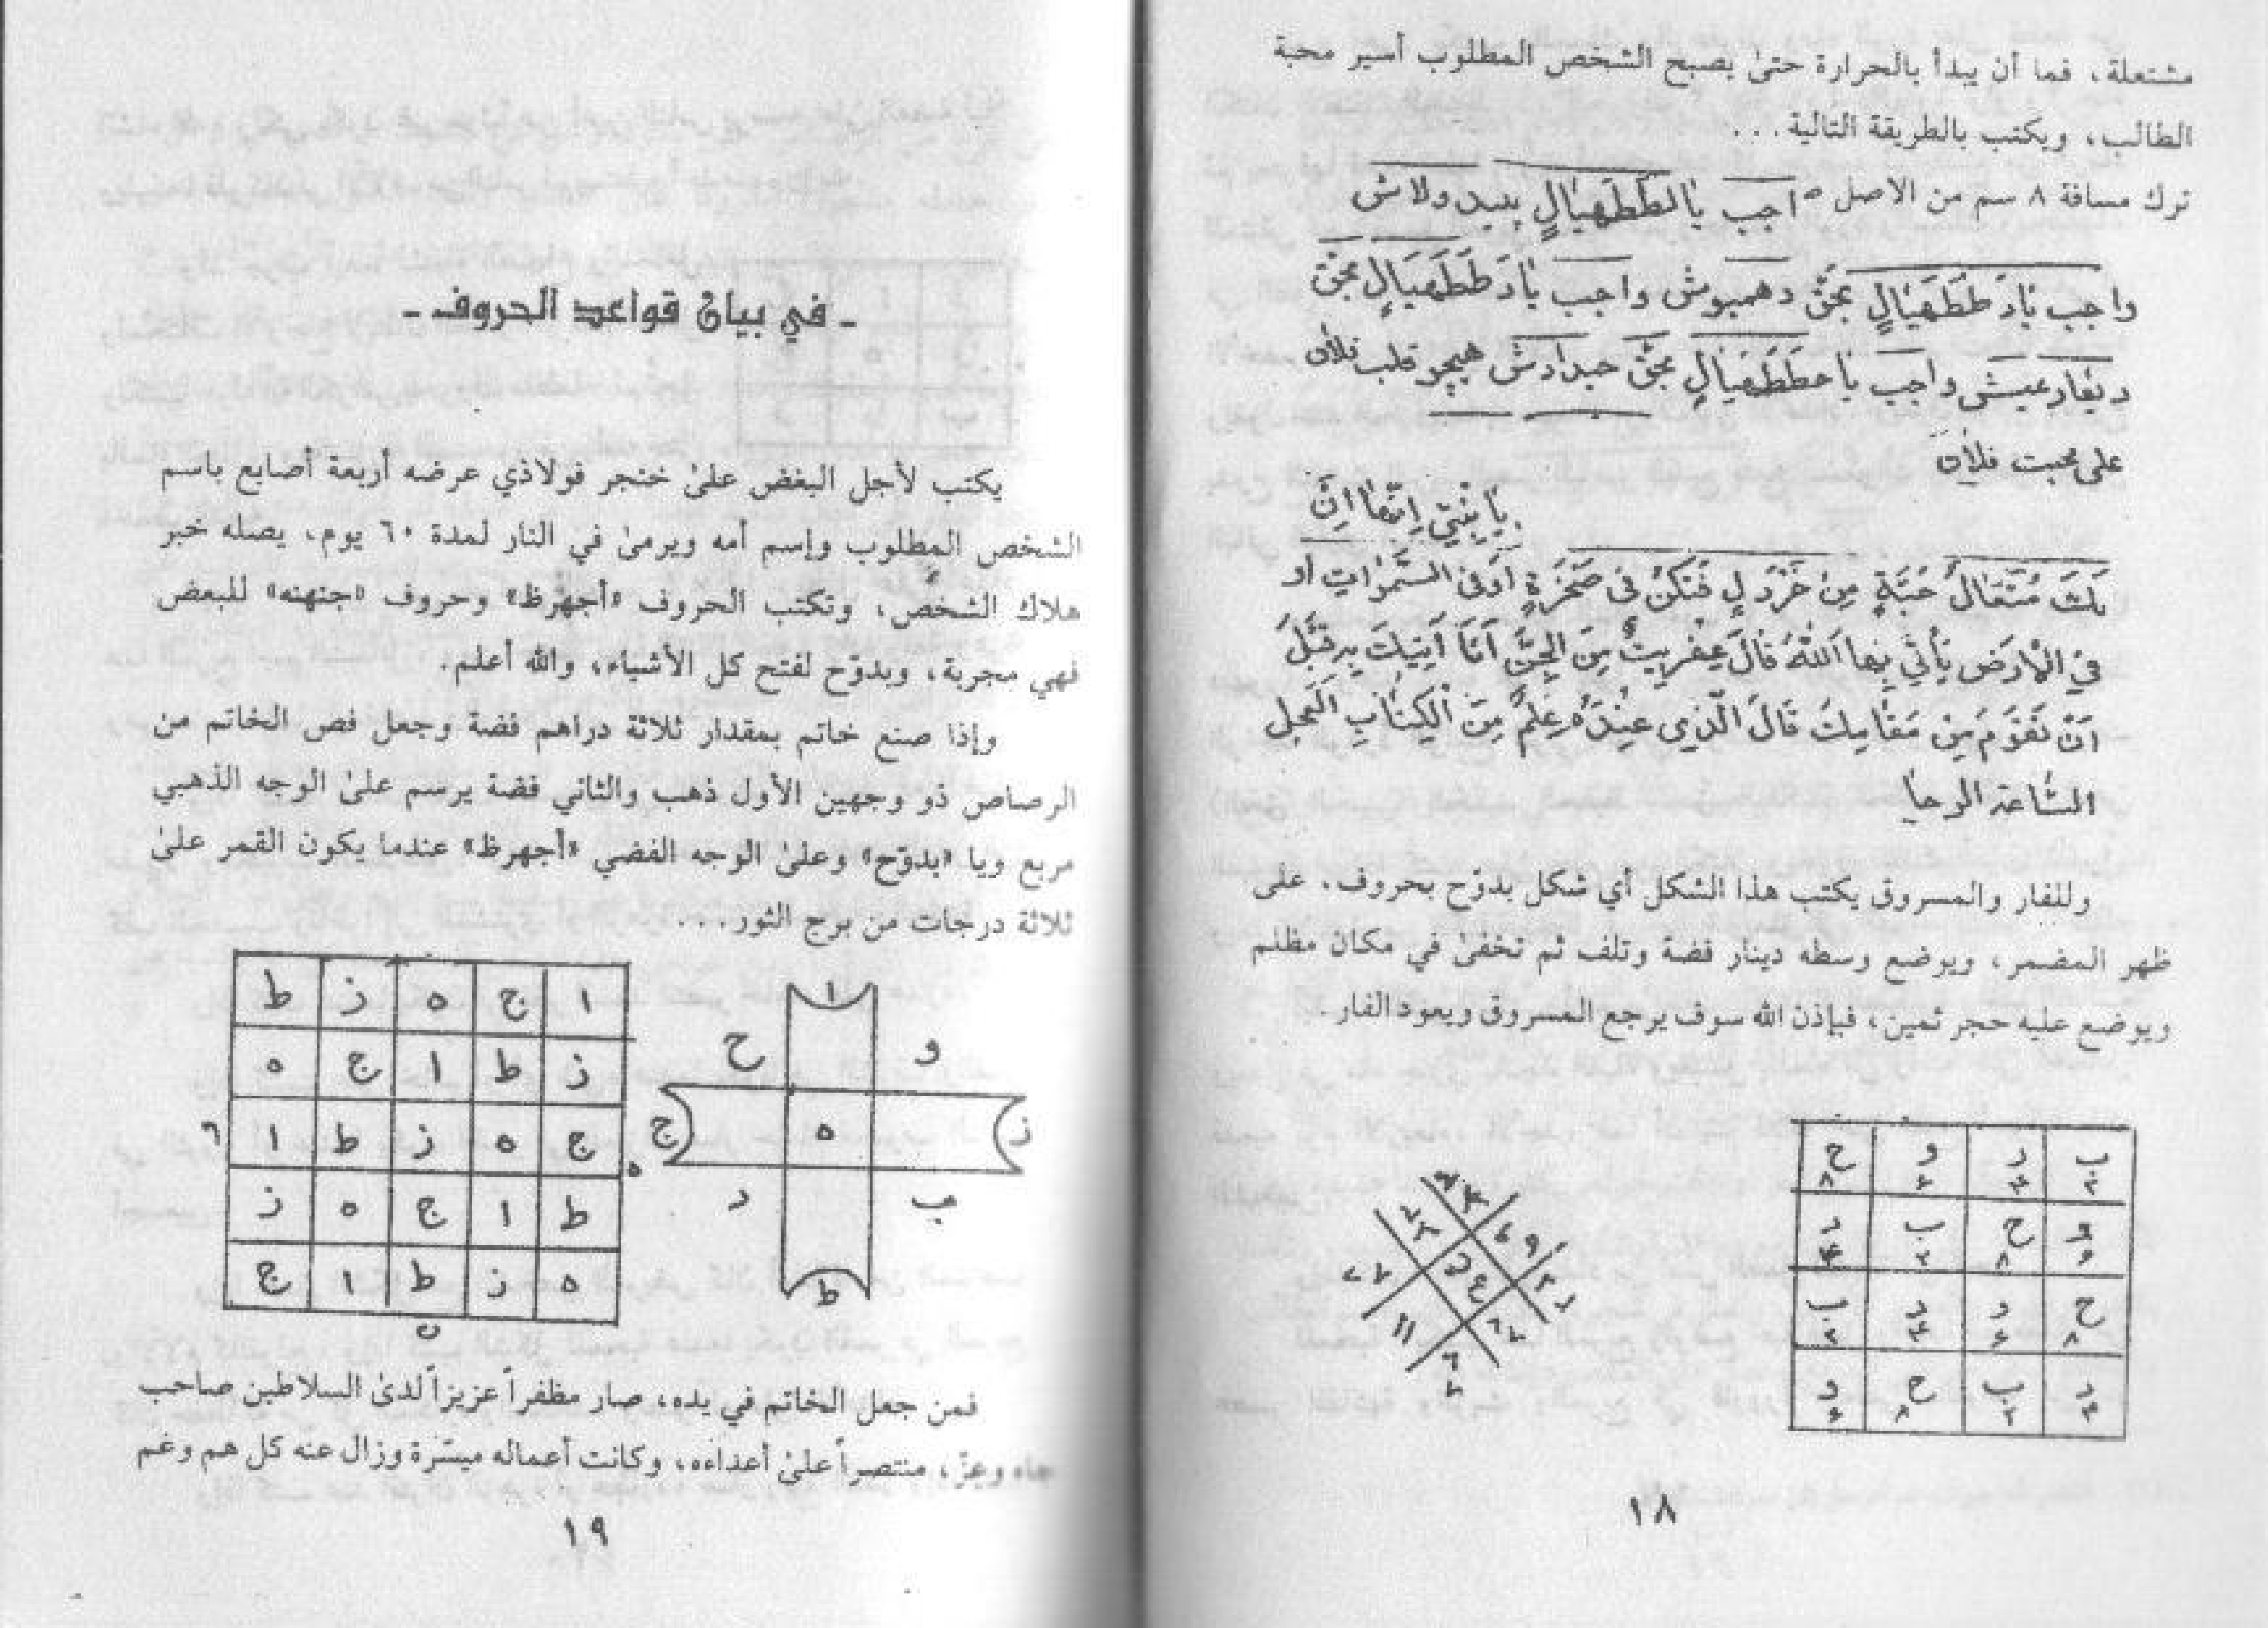 مشتعلة، فما أن يبدأ بالحرارة حتىٰ يصبح الشخص المطلوب أسير محبة
الطالب، ويكتب بالطريقة التالية...
ترك مسافة ٨ سم من الاصل ٥ اجب يا لطَطَهيَالٍ
واجب يادَ طَطَهيَالٍ بحَقّ دهميوش واجب يادَ طَطَهيَالٍ بحَقّ
واجب يا حطَطَهيَالٍ بحَقّ هيجو قلب فلان
على محبت فلان
يَا بُنَيَّ اِنَّهَا اِنْ
تَكُ مِثْقَالَ حَبَّةٍ مِنْ خَرْدَلٍ فَتَكُنْ فى صَخْرَةٍ اَوْ فى السَّمٰوَاتِ اَوْ
فِي الْاَرْضِ يَأْتِ بِهَا اَللّٰهُ قَالَ عِفْرِيتٌ مِنَ الْجِنِّ اَنَا اٰتِيكَ بِهِ قَبْلَ
اَنْ تَقُومَ مِنْ مَقَامِكَ قَالَ الَّذِى عِنْدَهُ عِلْمٌ مِنَ الْكِتَابِ الْعجل
السَّاعة الوحا
وللفار والمسروق يكتب هذا الشكل أي شكل بدوّح بحروف، على
ظهر المضمر، ويوضع وسطه دينار فضة وتلف ثم تخفىٰ في مكان مظلم
ويوضع عليه حجر ثمين، فبإذن الله سوف يرجع المسروق ويعود الفار.
ب د و ح
٢ ٤ ٨
و ح ب د
٨ ٢ ٤
ح و د ب
٨ ٤ ٢
د ب ح و
٤ ٢ ٨
١٨
- في بيان قواعد الحروف -
يكتب لأجل البغض علىٰ خنجر فولاذي عرضه أربعة أصابع باسم
الشخص المطلوب وإسم أمه ويرمىٰ في النار لمدة ٦٠ يوم، يصله خبر
هلاك الشخص، وتكتب الحروف «أجهرظ» وحروف «جنهنه» للبعض
فهي مجربة، وبدوّح لفتح كل الأشياء، والله أعلم.
وإذا صنع خاتم بمقدار ثلاثة دراهم فضة وجعل فص الخاتم من
الرصاص ذو وجهين الأول ذهب والثاني فضة يرسم علىٰ الوجه الذهبي
مربع ويا «بدوّح» وعلىٰ الوجه الفضي «أجهرظ» عندما يكون القمر علىٰ
ثلاثة درجات من برج الثور...
ا
و ح
ز ه ج
ب د
ط
ا ج ه ز ط
ز ط ا ج ه
ج ه ز ط ا
ط ا ج ه ز
ه ز ط ا ج
فمن جعل الخاتم في يده، صار مظفراً عزيزاً لدىٰ السلاطين صاحب
جاه وعزّ، منتصراً علىٰ أعداءه، وكانت أعماله ميسّرة وزال عنه كل هم وغم
١٩